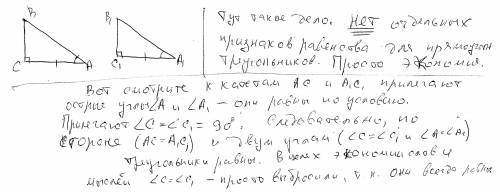 B
B
C
A
C₁
A₁
Тут такое дело. Нет отдельных
признаков равенства для прямоуг
треугольников. Просто экономия.
Вот смотрите к катетам AC и A₁C₁ прилегают
острые углы ∠A и ∠A₁ - они равны по условию.
Прилегают ∠C = ∠C₁ = 90°. Следовательно, по
стороне (AC = A₁C₁) и двум углам (∠C = ∠C₁ и ∠A = ∠A₁)
треугольники равны. В целях экономии слов и
мыслей ∠C = ∠C₁ - просто выбросили, т.к. они всегда равны